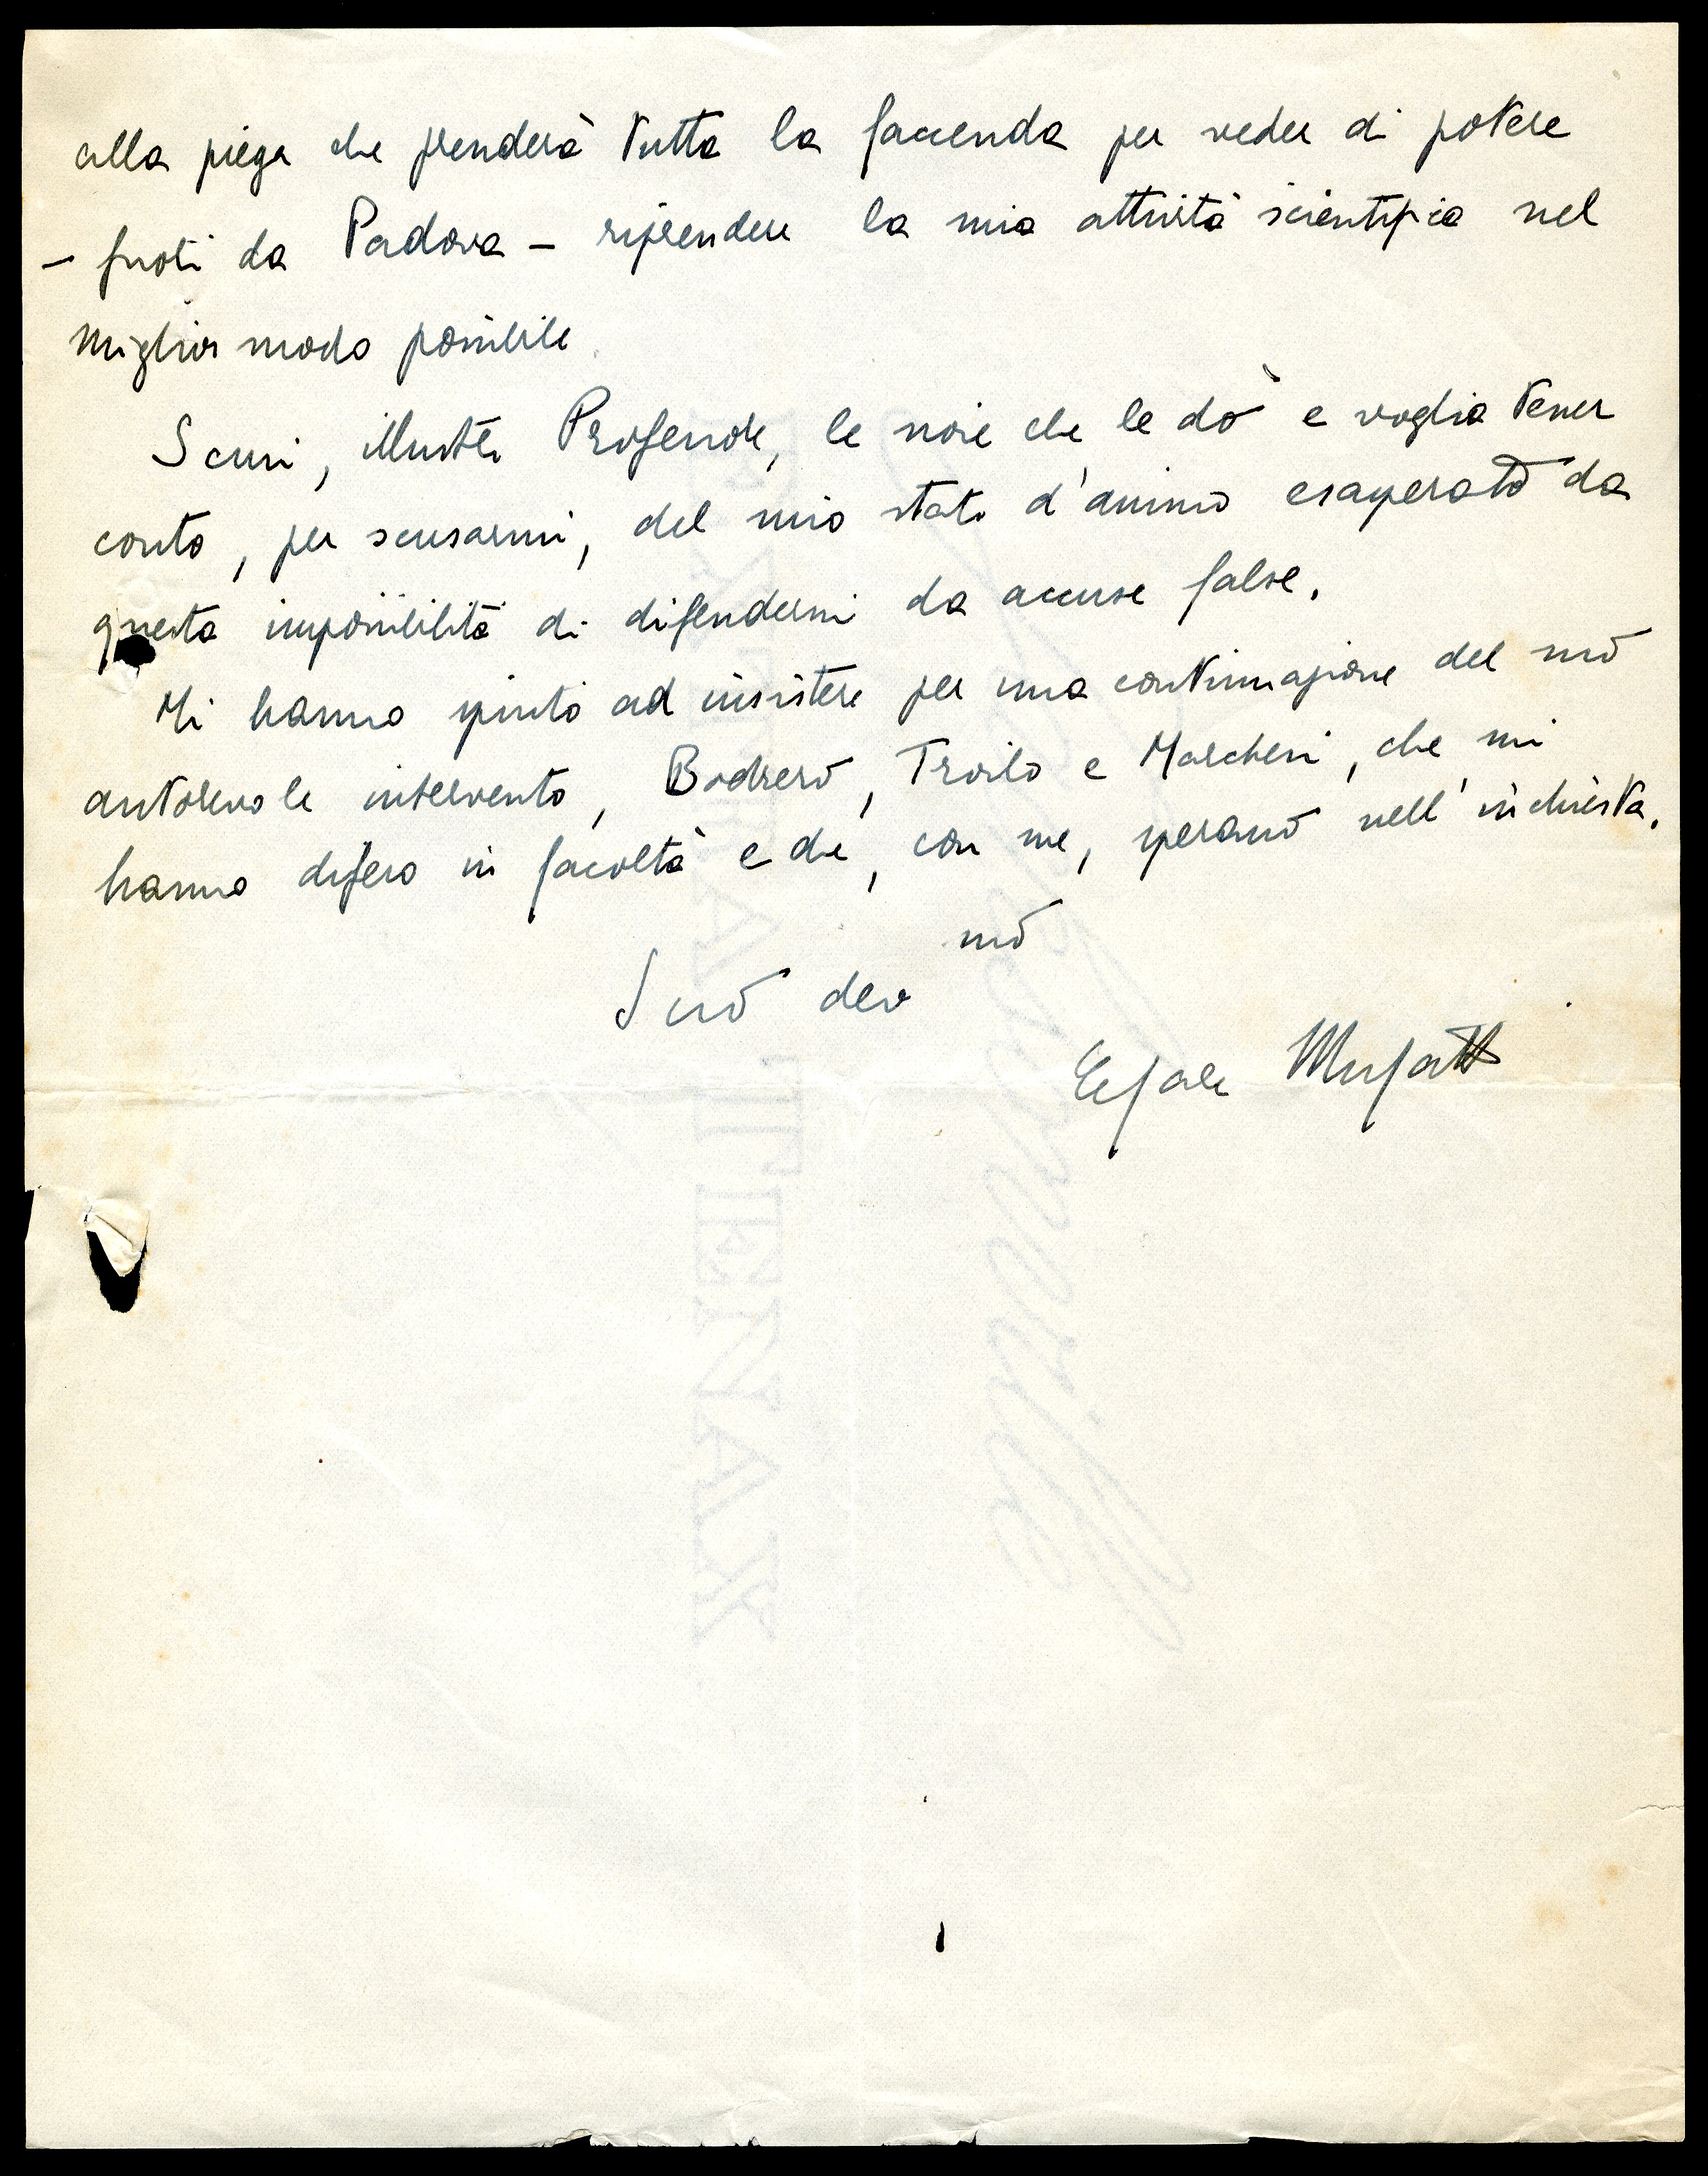 alla piega che prenderà tutta la faccenda per veder di potere
– fuori da Padova – riprendere la mia attività scientifica nel
miglior modo possibile.
Scusi, illustre Professore, le noie che le dò e voglia tener
conto, per scusarmi, del mio stato d'animo esasperato da
questa impossibilità di difendermi da accuse false.
Mi hanno spinto ad insistere per una continuazione del suo
autorevole intervento, Bodrero, Troilo e Marchesi, che mi
hanno difeso in facoltà e che, con me, sperano nell'inchiesta.
Suo dev mo
Cesare Musatti